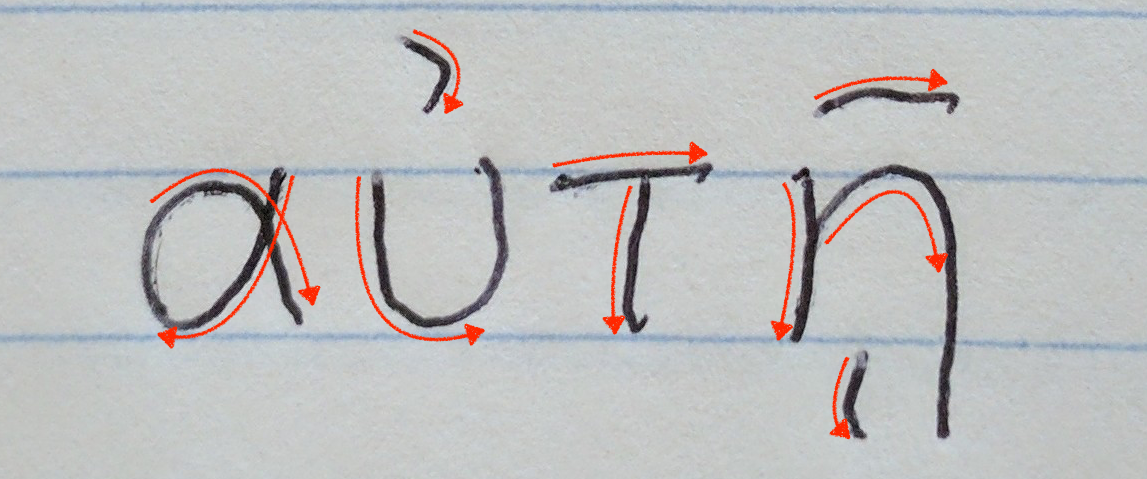 αὐτῇ